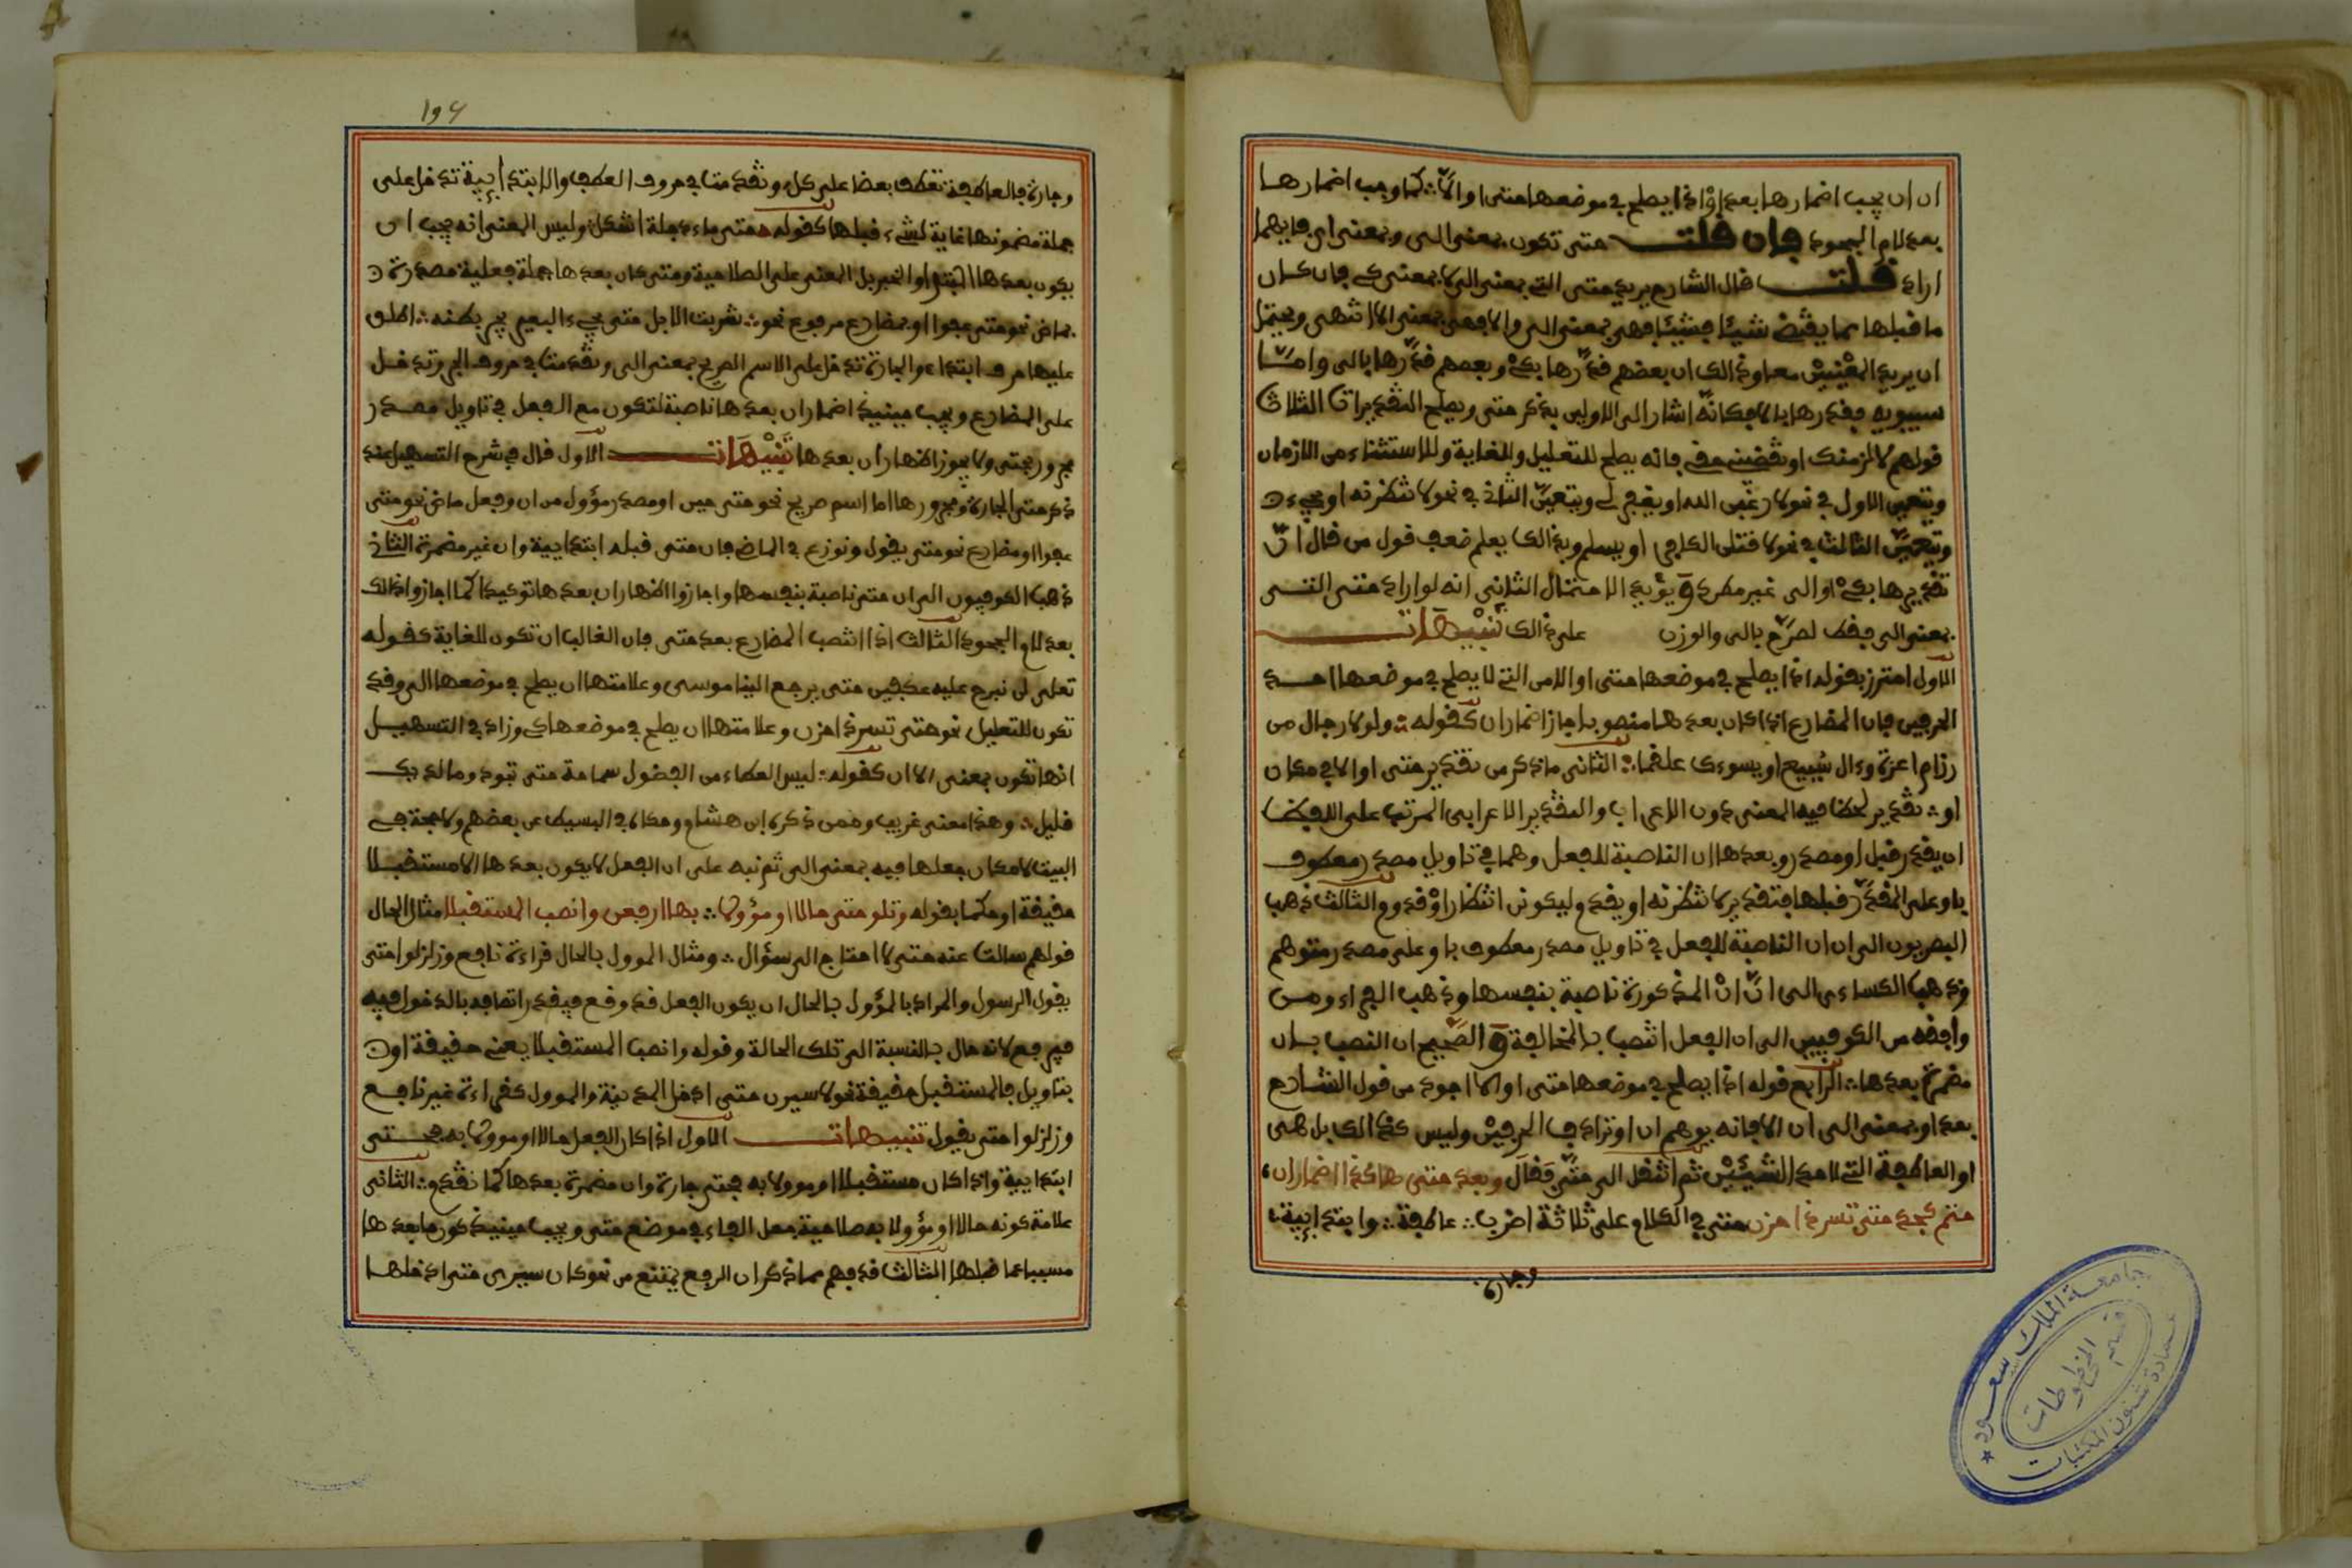 ان ان يجب اضمارها بعد أوْ اذا يصلح في موضعها حتى او الاّ ؞ كما وجب اضمارها
بعد لام الجحود فإن قلت حتى تكون بمعنى الى وبمعنى كي فايهما
اراد قلت قال الشارح يريد حتى التي بمعنى الى لا بمعنى كي فان كان
ما قبلها مما ينقضي شيئا فشيئا فهي بمعنى الى والا فهي بمعنى الا انتهى ويحتمل
ان يريد المعْنيَيْن معا وذالك ان بعضهم قدّرها بكيْ وبعضهم قدّرها بالى وامّا
سيبويه فقدرها بالا فكانّه اشار الى الاولين بذكر حتى ويصلح التقديرات الثلاث
قولهم لالزمنك او تقضيني حقي فانه يصلح للتعليل وللغاية وللاستثناء من الازمان
ويتعين الاول في نحو لارغبن الله او يغفر لي ويتعيّن الثاني في نحو لانتظرنه او يجيء
ويتعيّن الثالث في نحو لاقتلن الكافر او يسلم وبذالك يعلم ضعف قول من قال انّ
تقديرها بكيْ او الى غير مطرد ويؤيد الاحتمال الثاني انه لو اراد حتى التي
بمعنى الى فقط لصرّح بالى والوزن على ذالك تنبيهات
الاول احترز بقوله اذا يصلح في موضعها حتى او الا من التي لا يصلح في موضعها احد
الحرفين فان المضارع اذا كان بعدها منصوبا جاز اضمار ان كقوله ؞ ولولا رجال من
رزام اعزة وءال سُبيع او يسوءك علقما ؞ الثاني ما ذكر من تقدير حتى او الا في مكان
او ؞ تقدير لحظ فيه المعنى دون الاعراب والتقدير الاعرابي المرتب على اللفظ
ان يقدر قبل او مصدر وبعدها ان الناصبة للفعل وهما في تاويل مصدر معطوف
باو على المقدّر قبلها فتقدير لانتظرنه او يقدم ليكونن انتظار اوْ قدوم الثالث ذهب
البصريون الى ان ان الناصبة للفعل في تاويل مصدر معطوف باو على مصدر متوهم
وذهب الكساءي الى انّ انْ المذكورة ناصبة بنفسها وذهب الفراء ومن
وافقه من الكوفيين الى ان الفعل انتصب بالمخالفة والصّحيح ان النصب بان
مضمرة بعدها ؞ الرابع قوله اذا يصلح في موضعها حتى او الا اجود من قول الشارح
بعد او بمعنى الى ان الا فانه يوهم ان او ترادف الحرفيْن وليس كذالك بل هي
او العاطفة التي لاحد الشيئيْن ثم انتقل الى حتّى فقالَ وبعد حتى هاكذا اضمار ان
حتم كجد حتى تسر ذا حزن حتى في الكلام على ثلاثة اضرب ؞ عاطفة ؞ وابتدايية ؞
وجارة
196
وجارة فالعاطفة تعطف بعضا على كل وتقدمت في حروف العطف والابتدايية تدخل على
جملة مضمونها غاية لشيء قبلها كقوله حتى ماء دجلة اشكل وليس المعنى انه يجب ان
يكون بعدها المبتدا والخبر بل المعنى على الصلاحية ومتى كان بعدها جملة فعلية مصدرة
بماض نحو حتى عفوا او بمضارع مرفوع نحو ؞ شربت الابل حتى يجيء البعير يجر بطنه ؞ اطلق
عليها حرف ابتداء والجارة تدخل على الاسم الصريح بمعنى الى وتقدمت في حروف الجر وتدخل
على المضارع ويجب حينيذ اضمار ان بعدها ناصبة لتكون مع الفعل في تاويل مصدر
مجرور بحتى ولا يجوز اظهار ان بعدها تنبيهات الاول قال في شرح التسهيل عند
ذكر حتى الجارة ومجرورها اما اسم صريح نحو حتى حين او مصدر مؤول من ان وفعل ماض نحو حتى
عفوا او مضارع نحو حتى يقول ونوزع في الماضي فان حتى قبله ابتدايية وان غير مضمرة الثاني
ذهب الكوفيون الى ان حتى ناصبة بنفسها واجازوا اظهار ان بعدها توكيدا كما اجازوا ذالك
بعد لام الجحود الثالث اذا انتصب المضارع بعد حتى فان الغالب ان تكون للغاية كقوله
تعلى لن نبرح عليه عكفين حتى يرجع الينا موسى وعلامتها ان يصلح في موضعها الى وقد
تكون للتعليل نحو حتى تسر ذا حزن وعلامتها ان يصلح في موضعها كي وزاد في التسهيل
انها تكون بمعنى الا ان كقوله ؞ ليس العطاء من الفضول سماحة حتى تجود وما لديك
قليل ؞ وهذا معنى غريب وممن ذكره ابن هشام وحكاه في البسيط عن بعضهم ولا حجة في
البيت لامكان جعلها فيه بمعنى الى ثم نبه على ان الفعل لا يكون بعدها الا مستقبلا
حقيقة او حكما بقوله وتلو حتى حالا او مؤولا ؞ بها ارفعن وانصب المستقبلا مثال الحال
قولهم سالت عنه حتى لا احتاج الى سؤال ؞ ومثال الموول بالحال قراءة نافع وزلزلوا حتى
يقول الرسول والمراد بالمؤول بالحال ان يكون الفعل قد وقع فيقدر اتصافه بالدخول فيه
فيرفع لانه حال بالنسبة الى تلك الحالة وقوله وانصب المستقبلا يعني حقيقة او
بتاويل فالمستقبل حقيقة نحو لاسيرن حتى ادخل المدينة والموول كقراءة غير نافع
وزلزلوا حتى يقول تنبيهات الاول اذا كان الفعل حالا او موولا به فحتى
ابتدايية واذا كان مستقبلا او موولا به فحتى جارة وان مضمرة بعدها كما تقدم ؞ الثاني
علامة كونه حالا او مؤولا به صلاحية جعل الفاء في موضع حتى ويجب حينيذ كون ما بعدها
مسببا عما قبلها الثالث قد فهم مما ذكر ان الرفع يمتنع من نحو كان سيري حتى ادخلها
جامعة الملك سعود
قسم المخطوطات
عمادة شئون المكتبات